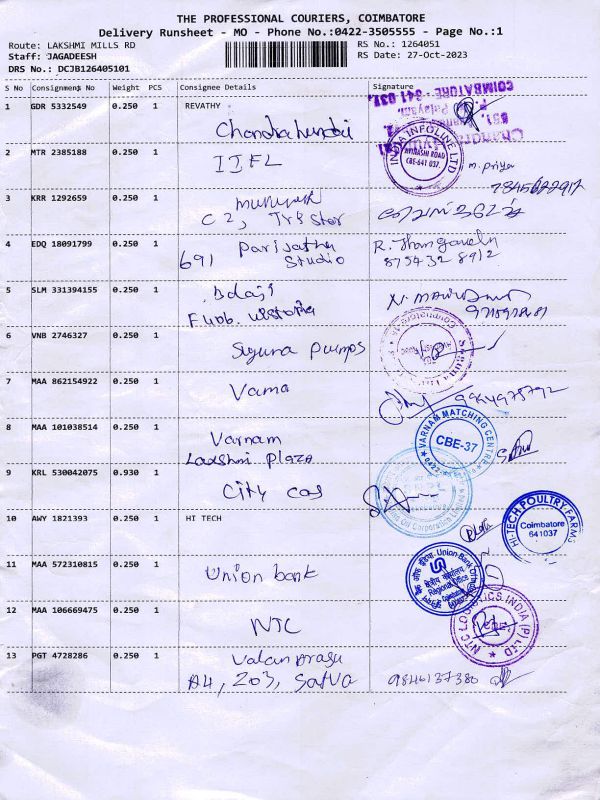 THE PROFESSIONAL COURIERS, COIMBATORE
Delivery Runsheet - MO - Phone No.:0422-3505555 - Page No.:1
Route: LAKSHMI MILLS RD
RS No.: 1264051
Staff: JAGADEESH
RS Date: 27-Oct-2023
DRS No.: DCJB126405101
S No Consignment No Weight PCS Consignee Details Signature
1 GDR 5332549 0.250 1 REVATHY
COIMBATORE - 641 037.
INDIA INFOLINE LTD
AVINASHI ROAD
CBE-641 037.
2 MTR 2385188 0.250 1 IIFL
M. Priya
3 KRR 1292659 0.250 1
C 2, Tristar
4 EDQ 18091799 0.250 1 Parijatha
691 Studio
875432 8912
5 SLM 331394155 0.250 1 Balaji
6 VNB 2746327 0.250 1 Suguna Pumps
7 MAA 862154922 0.250 1 Vama
9964975792
8 MAA 101038514 0.250 1 Varnam
Laxshmi Plaza
VARNAM MATCHING CENTRE
CBE-37
9 KRL 530042075 0.930 1 City Gas
10 AWY 1821393 0.250 1 HI TECH
HI-TECH POULTRY FARMS
Coimbatore
641037
11 MAA 572310815 0.250 1 Union bank
Union Bank
Regional Office
12 MAA 106669475 0.250 1 NTC
NTC LOGISTICS INDIA (P) LTD
13 PGT 4728286 0.250 1
A4, 203, Satva
9846137380